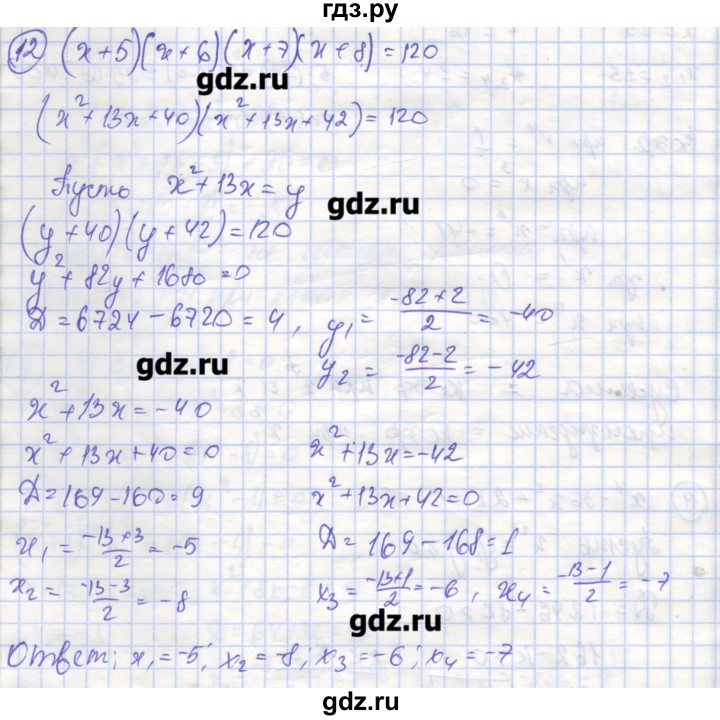 гдз.ру
12 (x+5)(x+6)(x+7)(x+8)=120
gdz.ru
(x²+13x+40)(x²+13x+42)=120
Пусть x²+13x=y
gdz.ru
(y+40)(y+42)=120
y²+82y+1680=0
D=6724-6720=4, y₁=(-82+2)/2=-40
gdz.ru
y₂=(-82-2)/2=-42
x²+13x=-40
x²+13x+40=0
x²+13x=-42
D=169-160=9
x²+13x+42=0
x₁=(-13+3)/2=-5
D=169-168=1
x₂=(-13-3)/2=-8
x₃=(-13+1)/2=-6, x₄=(-13-1)/2=-7
gdz.ru
Ответ: x₁=-5; x₂=-8; x₃=-6; x₄=-7
gdz.ru